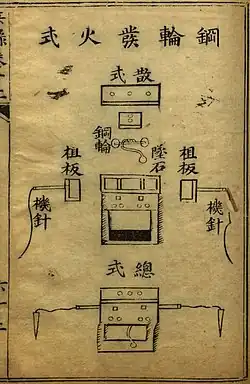 鋼輪發火式
散式
鋼輪
墜石
柤板
柤板
機針
機針
總式